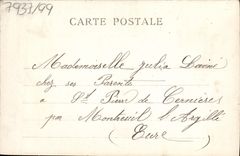 7937/99
CARTE POSTALE
Mademoiselle Julia
chez ses Parents
a St Pierre de Cernières
par Montreuil l'Argillé
(Eure)